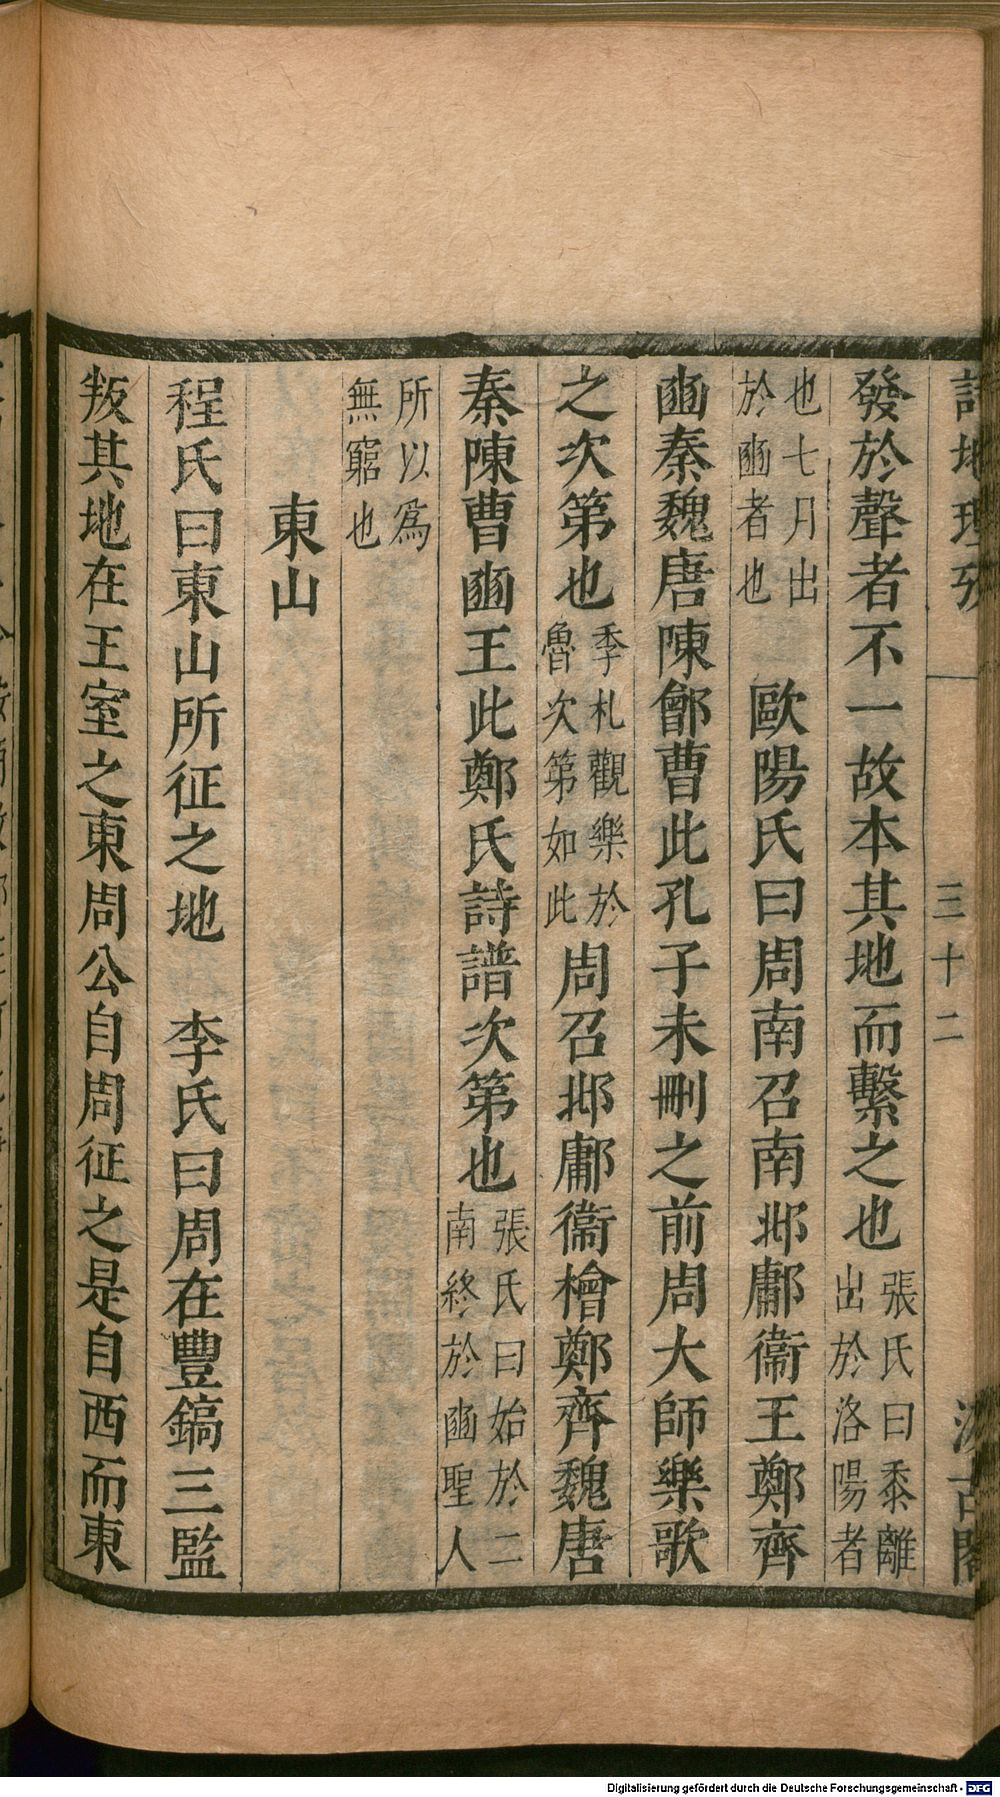 詩地理攷 三十二 汲古閣
發於聲者不一故本其地而繫之也張氏曰黍離出於洛陽者
也七月出於豳者也 歐陽氏曰周南召南邶鄘衞王鄭齊
豳秦魏唐陳鄶曹此孔子未刪之前周大師樂歌
之次第也季札觀樂於魯次第如此 周召邶鄘衞檜鄭齊魏唐
秦陳曹豳王此鄭氏詩譜次第也張氏曰始於二南終於豳聖人
所以爲無窮也
東山
程氏曰東山所征之地 李氏曰周在豐鎬三監
叛其地在王室之東周公自周征之是自西而東
Digitalisierung gefördert durch die Deutsche Forschungsgemeinschaft - DFG